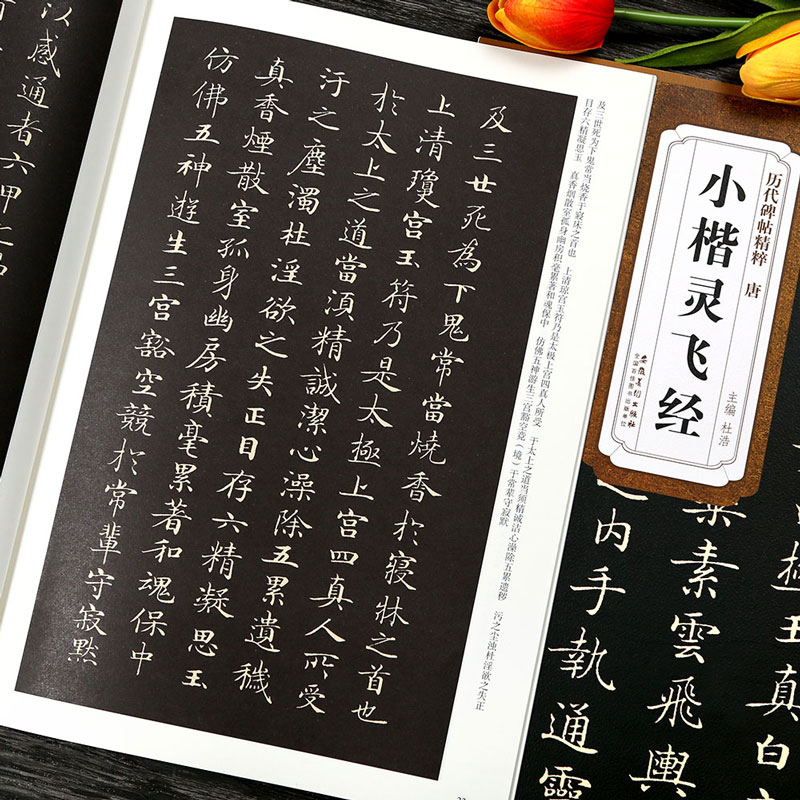 历代碑帖精粹 唐
小楷灵飞经
主编 杜浩
安徽美术出版社
全国百佳图书出版单位
極王真白
素雲飛輿
之内手執通靈
及三世死为下鬼常当烧香于寝床之首也 上清琼宫玉符乃是太极上宫四真人所受 于太上之道当须精诚洁心澡除五累遗秽 污之尘浊杜淫欲之失正
目存六精凝思玉 真香烟散室孤身幽房积毫累著和魂保中 仿佛五神游生三宫豁空竞（境）于常辈守寂默
及三世死為下鬼常當燒香於寢牀之首也
上清瓊宮玉符乃是太極上宮四真人所受
於太上之道當須精誠潔心澡除五累遺穢
汙之塵濁杜淫欲之失正目存六精凝思玉
真香煙散室孤身幽房積毫累著和魂保中
仿佛五神遊生三宮豁空競於常輩守寂默
以感通者六甲之